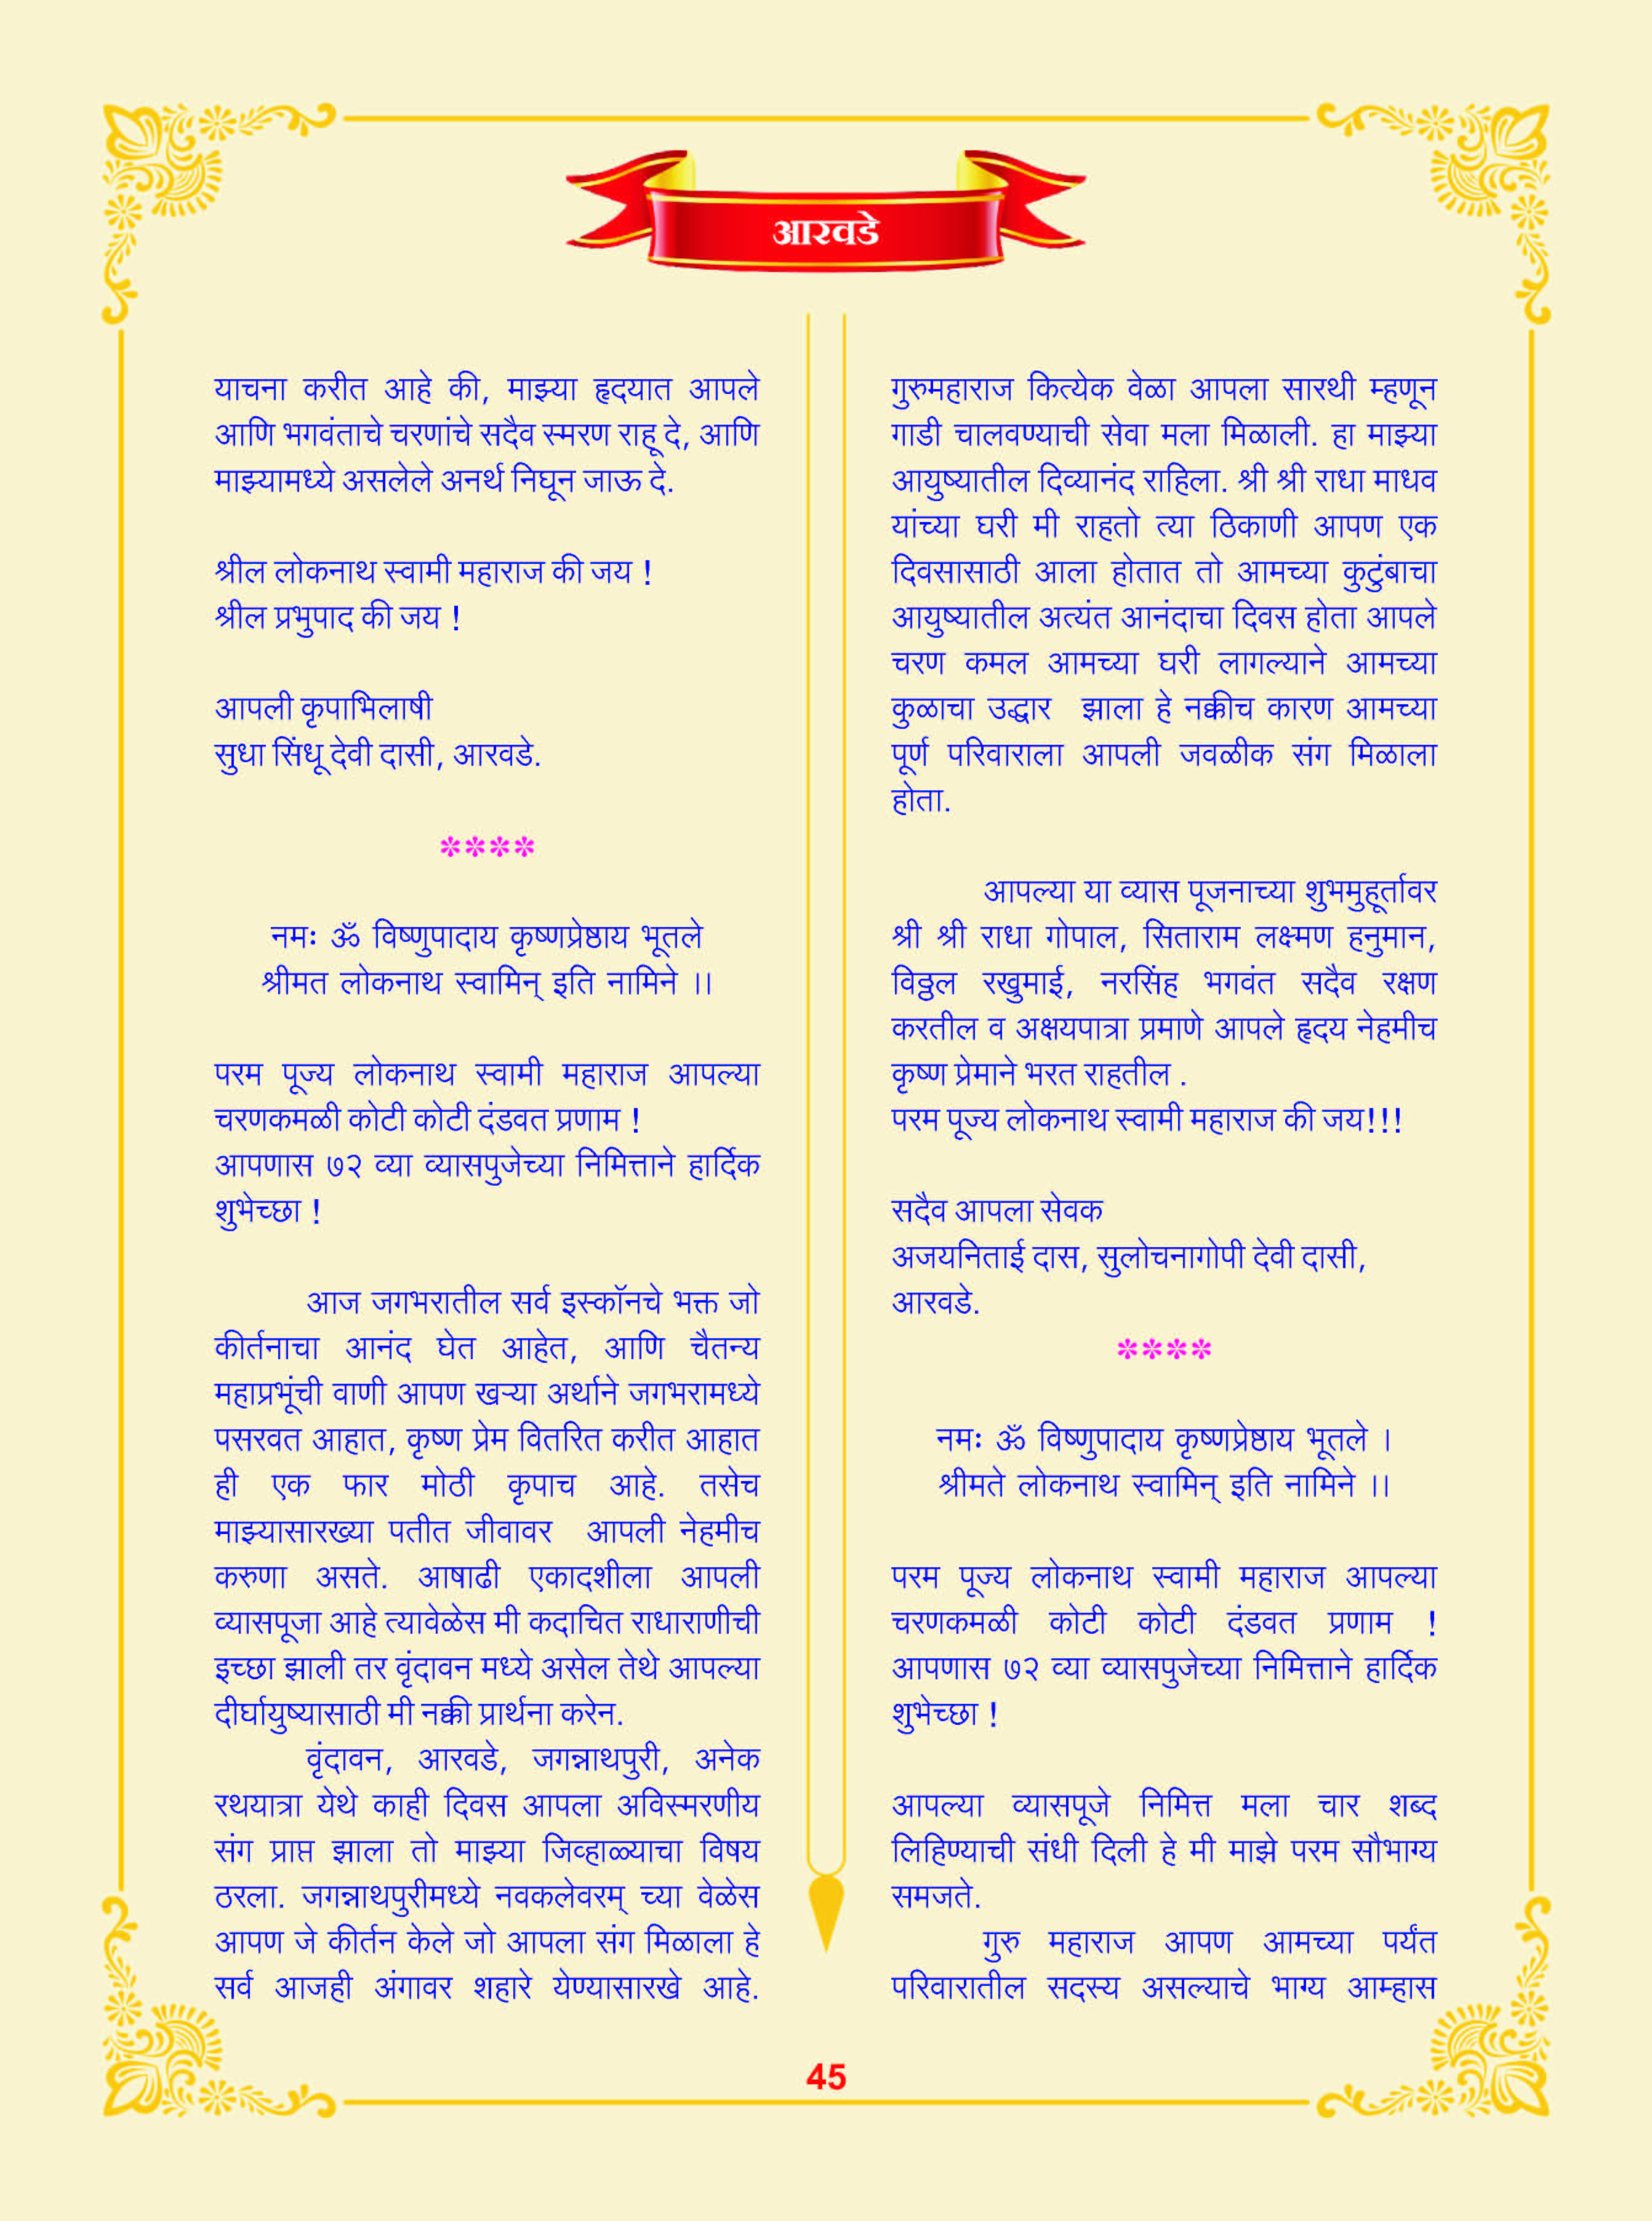 आरवडे
याचना करीत आहे की, माझ्या हृदयात आपले
आणि भगवंताचे चरणांचे सदैव स्मरण राहू दे, आणि
माझ्यामध्ये असलेले अनर्थ निघून जाऊ दे.
श्रील लोकनाथ स्वामी महाराज की जय !
श्रील प्रभुपाद की जय !
आपली कृपाभिलाषी
सुधा सिंधू देवी दासी, आरवडे.
****
नमः ॐ विष्णुपादाय कृष्णप्रेष्ठाय भूतले
श्रीमत लोकनाथ स्वामिन् इति नामिने ।।
परम पूज्य लोकनाथ स्वामी महाराज आपल्या
चरणकमळी कोटी कोटी दंडवत प्रणाम !
आपणास ७२ व्या व्यासपुजेच्या निमित्ताने हार्दिक
शुभेच्छा !
आज जगभरातील सर्व इस्कॉनचे भक्त जो
कीर्तनाचा आनंद घेत आहेत, आणि चैतन्य
महाप्रभूंची वाणी आपण खऱ्या अर्थाने जगभरामध्ये
पसरवत आहात, कृष्ण प्रेम वितरित करीत आहात
ही एक फार मोठी कृपाच आहे. तसेच
माझ्यासारख्या पतीत जीवावर आपली नेहमीच
करुणा असते. आषाढी एकादशीला आपली
व्यासपूजा आहे त्यावेळेस मी कदाचित राधाराणीची
इच्छा झाली तर वृंदावन मध्ये असेल तेथे आपल्या
दीर्घायुष्यासाठी मी नक्की प्रार्थना करेन.
वृंदावन, आरवडे, जगन्नाथपुरी, अनेक
रथयात्रा येथे काही दिवस आपला अविस्मरणीय
संग प्राप्त झाला तो माझ्या जिव्हाळ्याचा विषय
ठरला. जगन्नाथपुरीमध्ये नवकलेवरम् च्या वेळेस
आपण जे कीर्तन केले जो आपला संग मिळाला हे
सर्व आजही अंगावर शहारे येण्यासारखे आहे.
गुरुमहाराज कित्येक वेळा आपला सारथी म्हणून
गाडी चालवण्याची सेवा मला मिळाली. हा माझ्या
आयुष्यातील दिव्यानंद राहिला. श्री श्री राधा माधव
यांच्या घरी मी राहतो त्या ठिकाणी आपण एक
दिवसासाठी आला होतात तो आमच्या कुटुंबाचा
आयुष्यातील अत्यंत आनंदाचा दिवस होता आपले
चरण कमल आमच्या घरी लागल्याने आमच्या
कुळाचा उद्धार झाला हे नक्कीच कारण आमच्या
पूर्ण परिवाराला आपली जवळीक संग मिळाला
होता.
आपल्या या व्यास पूजनाच्या शुभमुहूर्तावर
श्री श्री राधा गोपाल, सिताराम लक्ष्मण हनुमान,
विठ्ठल रखुमाई, नरसिंह भगवंत सदैव रक्षण
करतील व अक्षयपात्रा प्रमाणे आपले हृदय नेहमीच
कृष्ण प्रेमाने भरत राहतील .
परम पूज्य लोकनाथ स्वामी महाराज की जय!!!
सदैव आपला सेवक
अजयनिताई दास, सुलोचनागोपी देवी दासी,
आरवडे.
****
नमः ॐ विष्णुपादाय कृष्णप्रेष्ठाय भूतले ।
श्रीमते लोकनाथ स्वामिन् इति नामिने ।।
परम पूज्य लोकनाथ स्वामी महाराज आपल्या
चरणकमळी कोटी कोटी दंडवत प्रणाम !
आपणास ७२ व्या व्यासपुजेच्या निमित्ताने हार्दिक
शुभेच्छा !
आपल्या व्यासपूजे निमित्त मला चार शब्द
लिहिण्याची संधी दिली हे मी माझे परम सौभाग्य
समजते.
गुरु महाराज आपण आमच्या पर्यंत
परिवारातील सदस्य असल्याचे भाग्य आम्हास
45